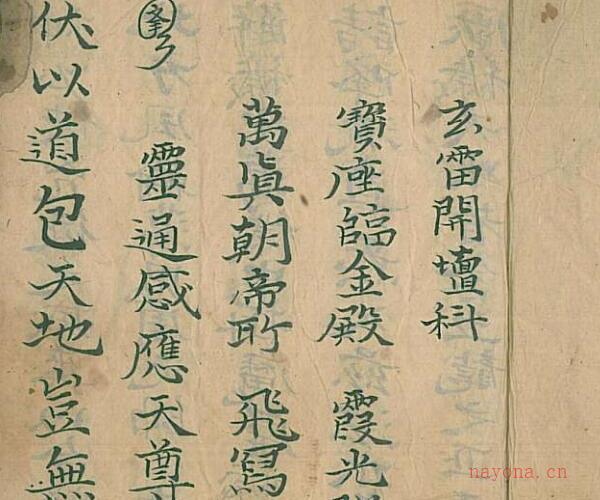 玄雷開壇科
寶座臨金殿 霞光
萬眞朝帝所 飛寫
靈通感應天尊
伏以道包天地豈無
nayona.cn